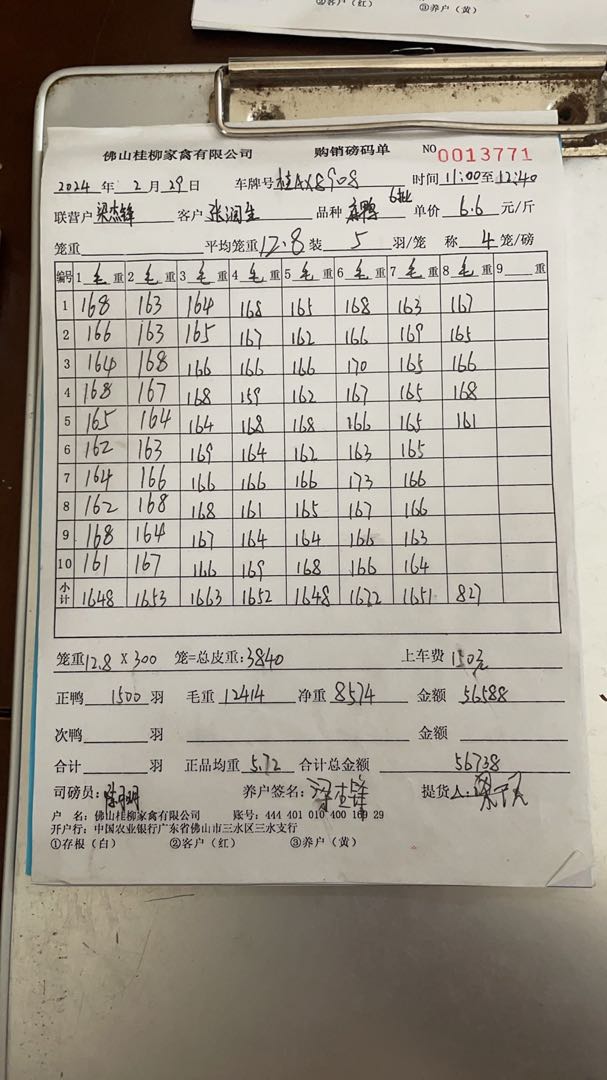 ②客户（红） ③养户（黄）
佛山桂柳家禽有限公司 购销磅码单 NO 0013771
2024 年 2 月 29 日 车牌号 桂AX8908 时间 11:00 至 12:40
联营户 梁杰锋 客户 张润生 品种 麻鸭 6批 单价 6.6 元/斤
笼重 平均笼重 12.8 装 5 羽/笼 称 4 笼/磅
编号 1 毛 重 2 毛 重 3 毛 重 4 毛 重 5 毛 重 6 毛 重 7 毛 重 8 毛 重 9 重
1 168 163 164 168 165 168 163 167
2 166 163 165 167 162 166 169 165
3 164 168 166 166 166 170 165 166
4 168 167 168 159 162 167 165 168
5 165 164 164 168 168 166 165 161
6 162 163 169 164 162 163 165
7 164 166 166 166 166 173 166
8 162 168 168 161 165 167 166
9 168 164 167 164 164 166 163
10 161 167 166 169 168 166 164
小计 1648 1653 1663 1652 1648 1672 1651 827
笼重 12.8 X 300 笼=总皮重: 3840 上车费 150元
正鸭 1500 羽 毛重 12414 净重 8574 金额 56588
次鸭 羽 金额
合计 羽 正品均重 5.72 合计总金额 56738
司磅员: 养户签名: 梁杰锋 提货人:
户 名: 佛山桂柳家禽有限公司 账号: 444 401 010 400 160 29
开户行: 中国农业银行广东省佛山市三水区三水支行
①存根（白） ②客户（红） ③养户（黄）